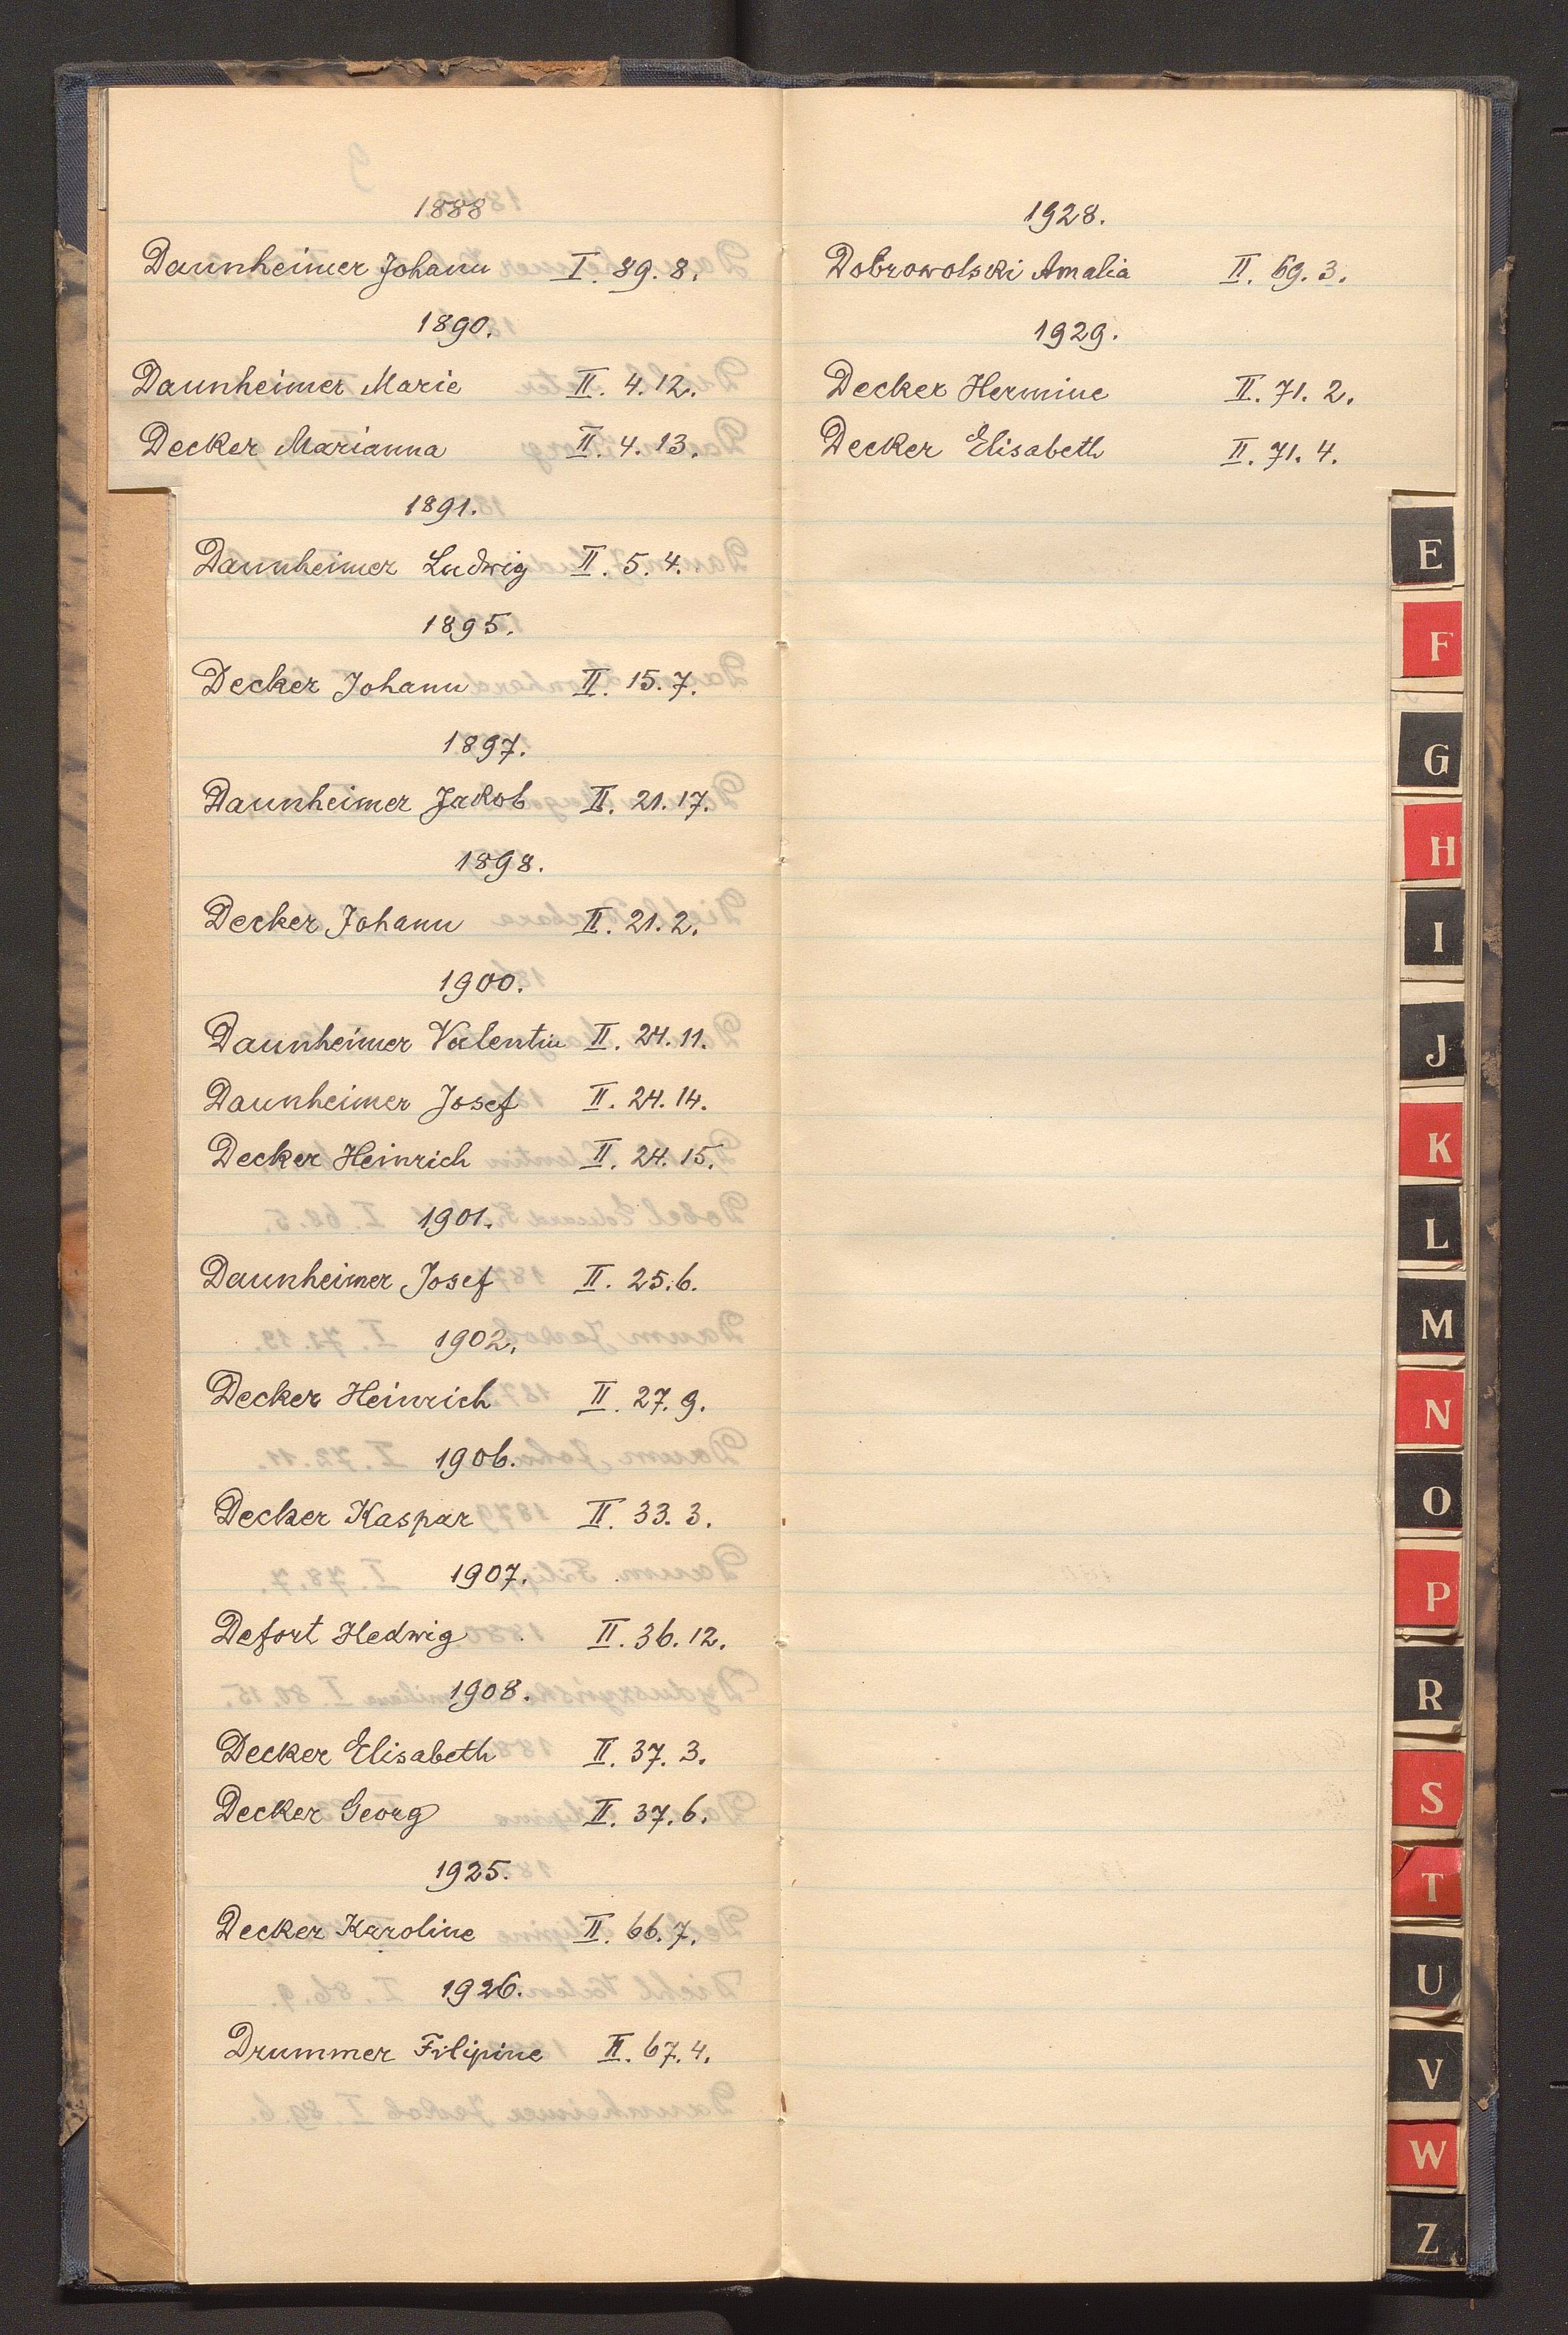 1888
Daunheimer Johann I. 89. 8.
1890.
Daunheimer Marie II. 4. 12.
Decker Marianna II. 4. 13.
1891.
Daunheimer Ludwig II. 5. 4.
1895.
Decker Johann II. 15. 7.
1897.
Daunheimer Jakob II. 21. 17.
1898.
Decker Johann II. 21. 2.
1900.
Daunheimer Valentin II. 24. 11.
Daunheimer Josef II. 24. 14.
Decker Heinrich II. 24. 15.
1901.
Daunheimer Josef II. 25. 6.
1902.
Decker Heinrich II. 27. 9.
1906.
Decker Kaspar II. 33. 3.
1907.
Defort Hedwig II. 36. 12.
1908.
Decker Elisabeth II. 37. 3.
Decker Georg II. 37. 6.
1925.
Decker Karoline II. 66. 7.
1926.
Drummer Filipine II. 67. 4.
1928.
Dobrowolski Amalia II. 69. 3.
1929.
Decker Hermine II. 71. 2.
Decker Elisabeth II. 71. 4.
E
F
G
H
I
J
K
L
M
N
O
P
R
S
T
U
V
W
Z